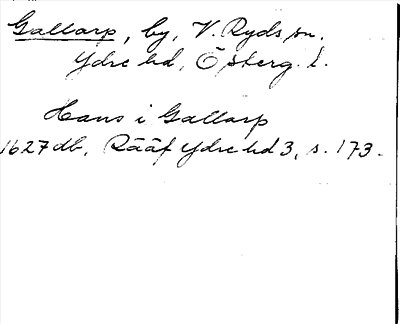 Gallarp, by, V. Ryds sn.
Ydre hd, Österg. l.
Hans i Gallarp
1627 db. Rääf Ydre hd 3, s. 173.